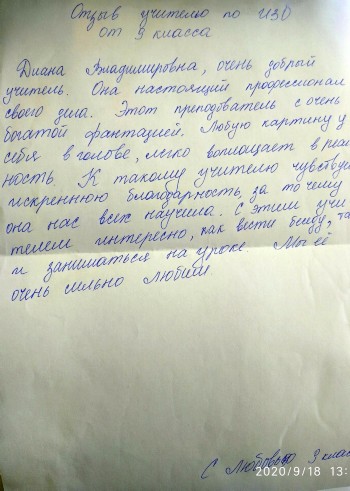 Отзыв учителю по ИЗО
от 9 класса
Диана Владимировна, очень добрый
учитель. Она настоящий профессионал
своего дела. Этот преподаватель с очень
богатой фантазией. Любую картину у
себя в голове, легко воплощает в реаль
ность. К такому учителю чувствуе
искреннюю благодарность, за то чему
она нас всех научила. С этим учи
телем интересно, как вести беседу, та
и заниматься на уроке. Мы её
очень сильно любим
С Любовью 9 клас
2020/9/18 13: